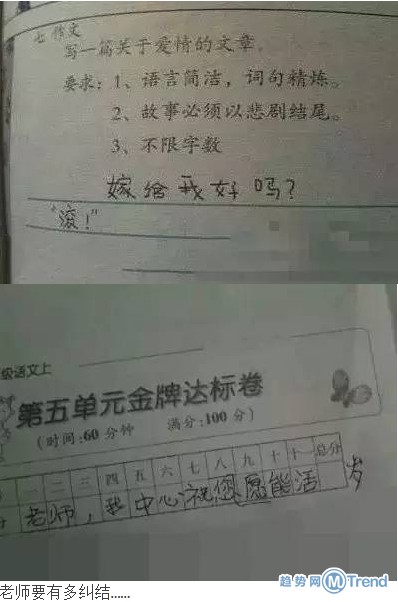 七 作文
写一篇关于爱情的文章。
要求：1、语言简洁，词句精炼。
2、故事必须以悲剧结尾。
3、不限字数
嫁给我好吗？
“滚！”
级语文上
第五单元金牌达标卷
（时间:60分钟 满分:100分）
一 二 三 四 五 六 七 八 九 十 十一 总分
分 老师，我中心祝您愿能活 岁
趋势网 Mtrend
老师要有多纠结……